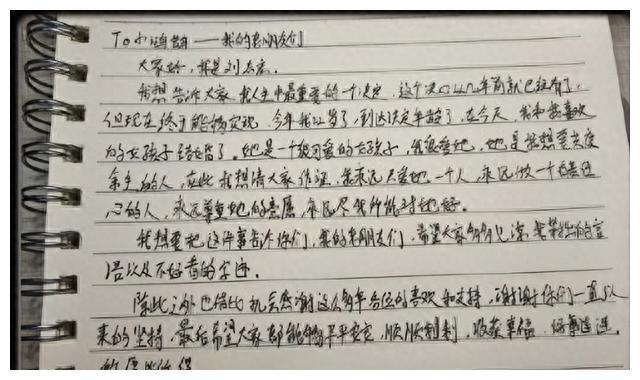 To 小鸿群——我的老朋友们
大家好,我是刘志宏。
我想告诉大家我人生中最重要的一个决定,这个决心几年前就已经有了,
但现在终于能够实现。今年我22岁了,到达法定年龄了,在今天,我和我喜欢
的女孩子结婚了。她是一个很可爱的女孩子,我很爱她,她是我想要共度
余生的人,在此我想请大家作证,我永远只爱她一个人,永远做一个有责任
心的人,永远尊重她的意愿,永远尽我所能对她好。
我想要把这件事告诉你们,我的老朋友们,希望大家多多见谅我笨拙的言
语以及不好看的字迹。
除此之外也借此机会感谢这么多年各位的喜欢和支持,谢谢你们一直以
来的坚持,最后希望大家都能够平平安安,顺顺利利,收获幸福,好事连连。